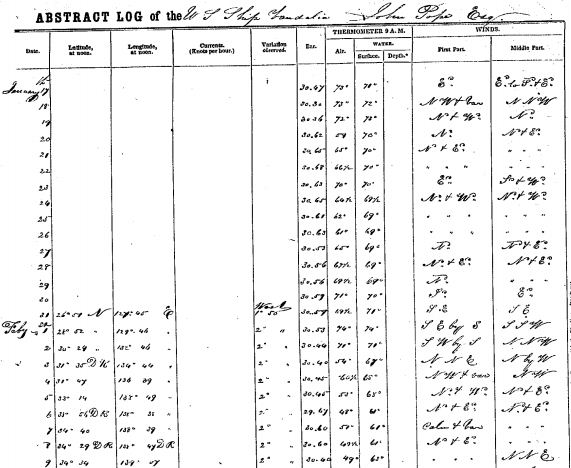 ABSTRACT LOG of the U S Ship Vandalia John Pope Esq
THERMOMETER 9 A.M. WINDS.
Date. Latitude, at noon. Longitude, at noon. Currents. (Knots per hour.) Variation observed. Bar. Air. WATER. Surface. Depth.* First Part. Middle Part.
January 17 30.47 73° 70° E. E. to S. & E.
18 30.30 73° 72° N W & var N N W
19 30.36 72° 73° N & W. N.
20 30.62 59 70° N. N & E.
21 30.65 65° 70° N & E. " " "
22 30.68 66½ 70° " " "
23 30.63 70° 70° E. S. & W.
24 30.65 64½ 69½ N. & W. N. & W.
25 30.61 62° 69° " " " " " "
26 30.63 61° 69° " " " " " "
27 30.53 65° 69° N. N & E.
28 30.56 67½ 69° N. & E. N & E.
29 30.56 69½ 69° N. " " "
30 30.59 71° 70° E.
31 26° 50 N 127° 45 E West 1° 50 30.59 70° S E S E
Feby 1 28° 52 " 129° 46 " 2° " 30.53 74° 74° S E by S S S W
2 30° 29 " 132° 46 " 2° " 30.44 70° 70° S W by S N N W
3 31° 35 D R 134° 44 " 2° " 30.40 54° 67° N N E N by W
4 31° 47 136 39 " 2° " 30.45 60½ 65° N W & var N W
5 33° 14 138° 49 " 2° " 30.45 53° 65° N. & W. N. & E.
6 33° 56 D R 138° 35 " 2° " 29.67 48° 61° N & E. N & E.
7 34° 40 138° 39 " 2° " 30.60 50° 61° Calm & var " " "
8 34° 29 D R 138° 47 D R 2° " 30.60 49½ 61° N & E. " " "
9 34° 34 138° 07 2° " 30.40 49° 63° " " " N N E